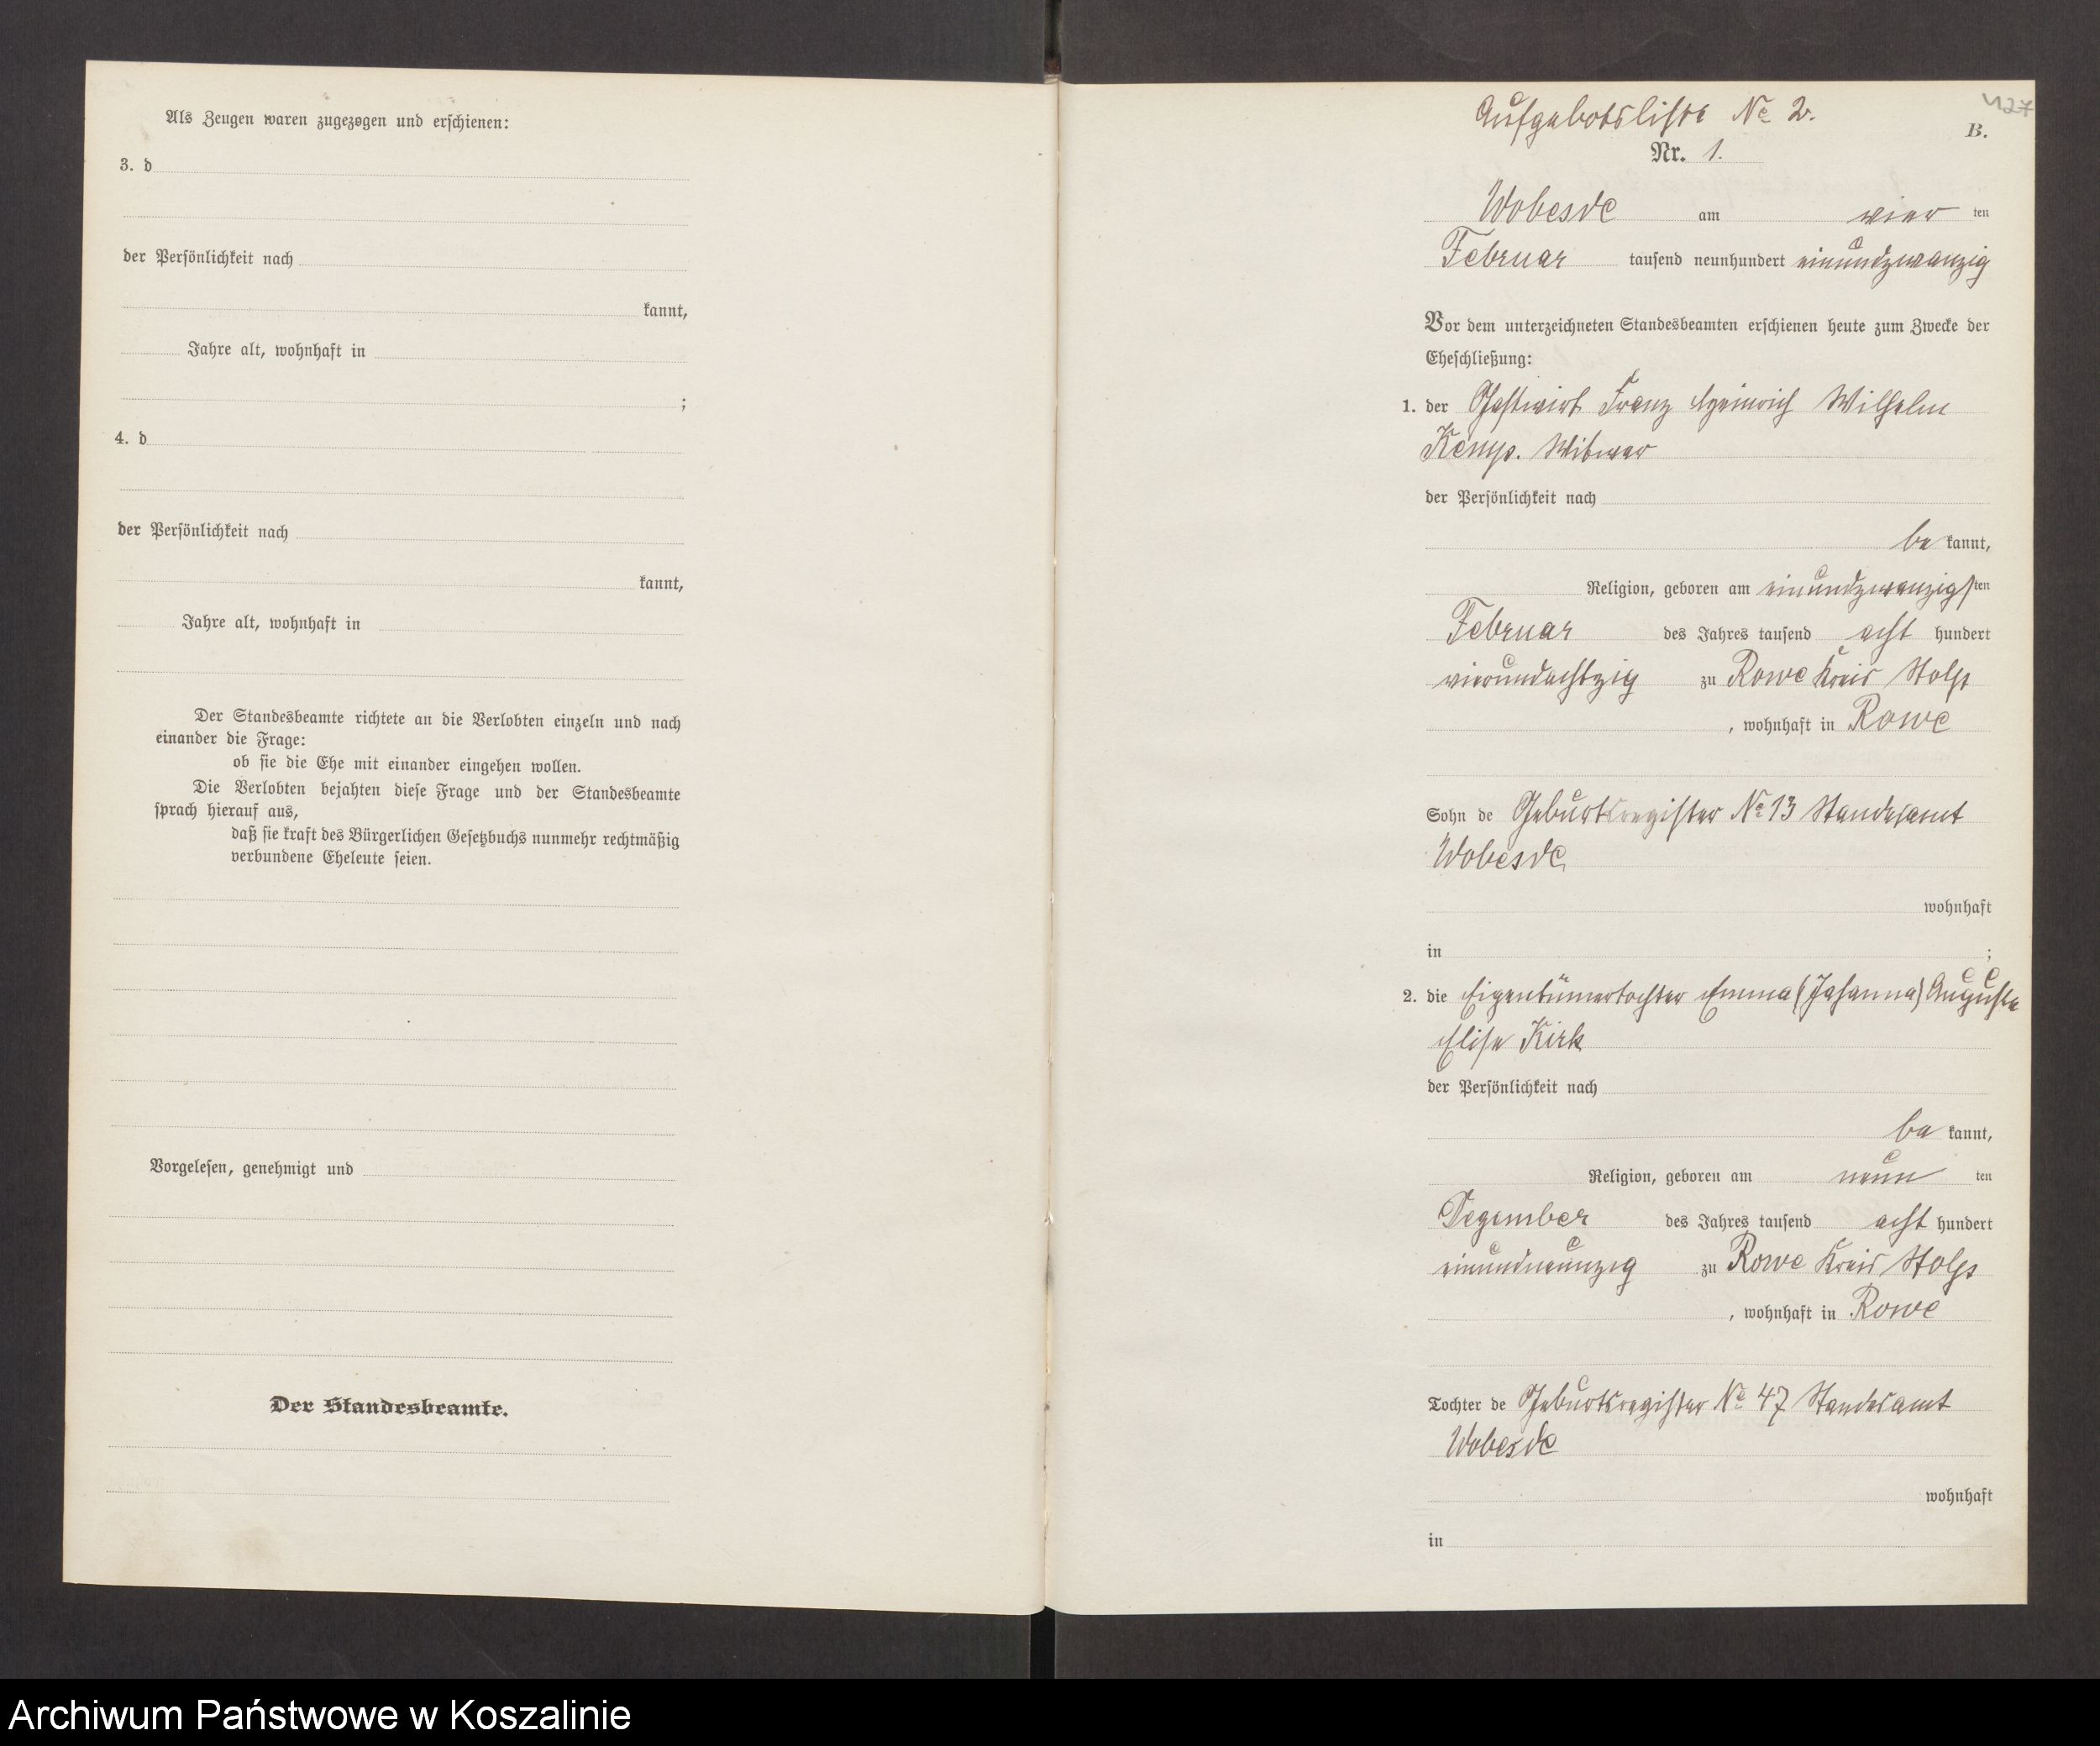 Als Zeugen waren zugezogen und erschienen:
3. d
der Persönlichkeit nach
kannt,
Jahre alt, wohnhaft in
;
4. d
der Persönlichkeit nach
kannt,
Jahre alt, wohnhaft in
Der Standesbeamte richtete an die Verlobten einzeln und nach
einander die Frage:
ob sie die Ehe mit einander eingehen wollen.
Die Verlobten bejahten diese Frage und der Standesbeamte
sprach hierauf aus,
daß sie kraft des Bürgerlichen Gesetzbuchs nunmehr rechtmäßig
verbundene Eheleute seien.
Vorgelesen, genehmigt und
Der Standesbeamte.
427
Aufgebotsliste No 2.
B.
Nr. 1.
Wobesde am vier ten
Februar tausend neunhundert einundzwanzig
Vor dem unterzeichneten Standesbeamten erschienen heute zum Zwecke der
Eheschließung:
1. der Gastwirt Franz Heinrich Wilhelm
Kemp. Witwer
der Persönlichkeit nach
be kannt,
Religion, geboren am einundzwanzigsten
Februar des Jahres tausend acht hundert
vierundachtzig zu Rowe Kreis Stolp
, wohnhaft in Rowe
Sohn de Geburtsregister No 13 Standesamt
Wobesde
wohnhaft
in ;
2. die Eigentümertochter Emma (Johanna) Auguste
Elise Kirk
der Persönlichkeit nach
be kannt,
Religion, geboren am neun ten
Dezember des Jahres tausend acht hundert
einundneunzig zu Rowe Kreis Stolp
, wohnhaft in Rowe
Tochter de Geburtsregister No 47 Standesamt
Wobesde
wohnhaft
in
Archiwum Państwowe w Koszalinie